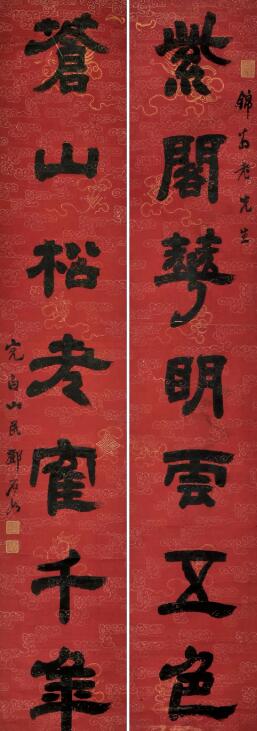 紫閣華明雲五色
錦老先生
蒼山松老寉千年
完白山民鄧石如